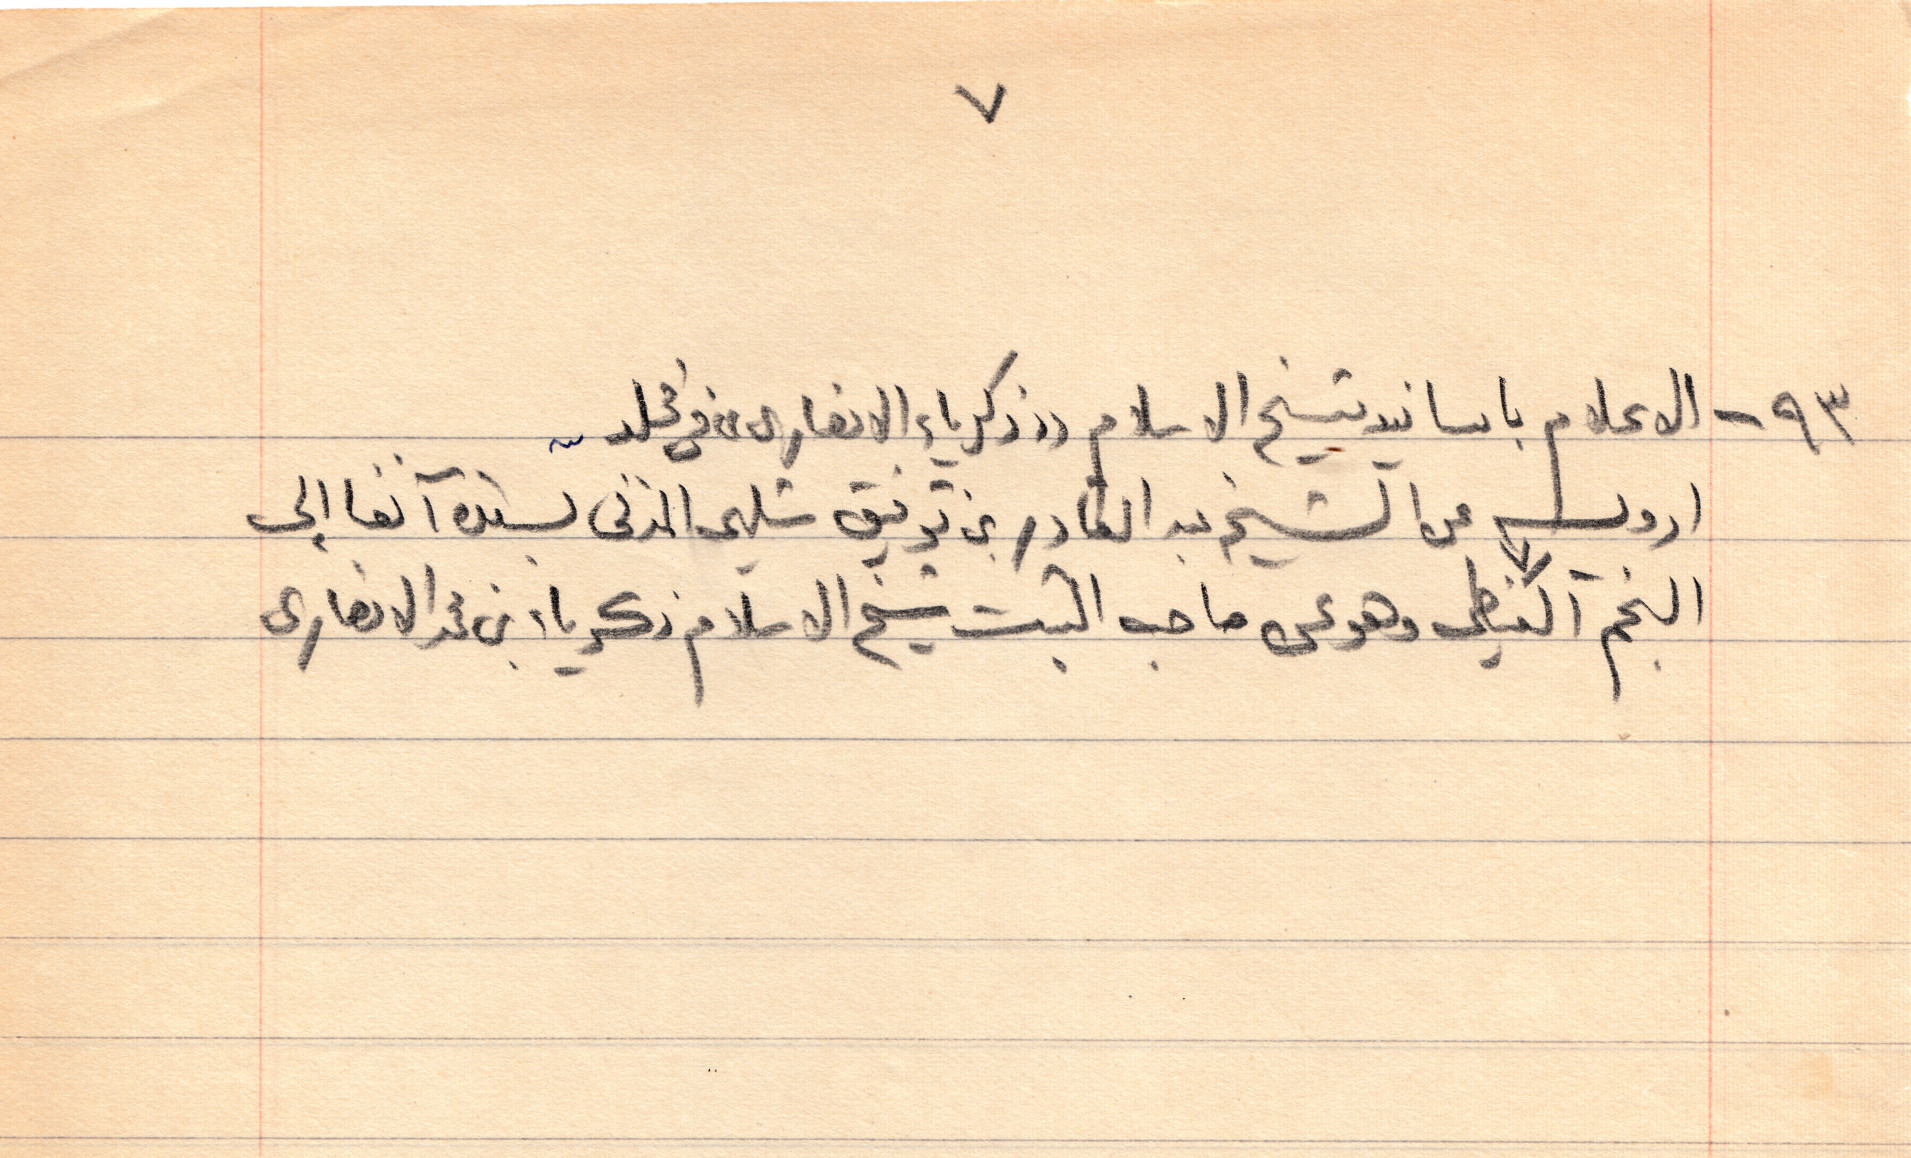 ٧
٩٣ - الاعلام باسانيد شيخ الاسلام زكرياء الانصارى في مجلد
ارويه عن الشيخ عبد القادر بن توفيق شلبى المدنى بسنده آنفا إلى
النجم الغيطى وهو عن صاحب الثبت شيخ الاسلام زكرياء بن محمد الانصارى